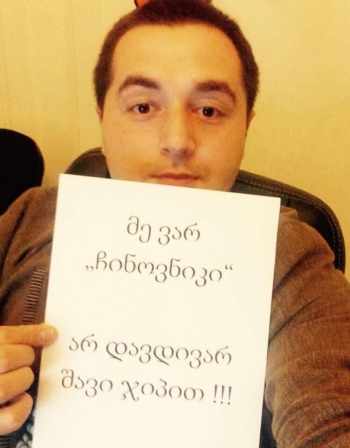 მე ვარ
„ჩინოვნიკი“
არ დავდივარ
შავი ჯიპით !!!